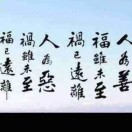 人為善
福雖未至
禍已遠離
人為惡
禍雖未至
福已遠離